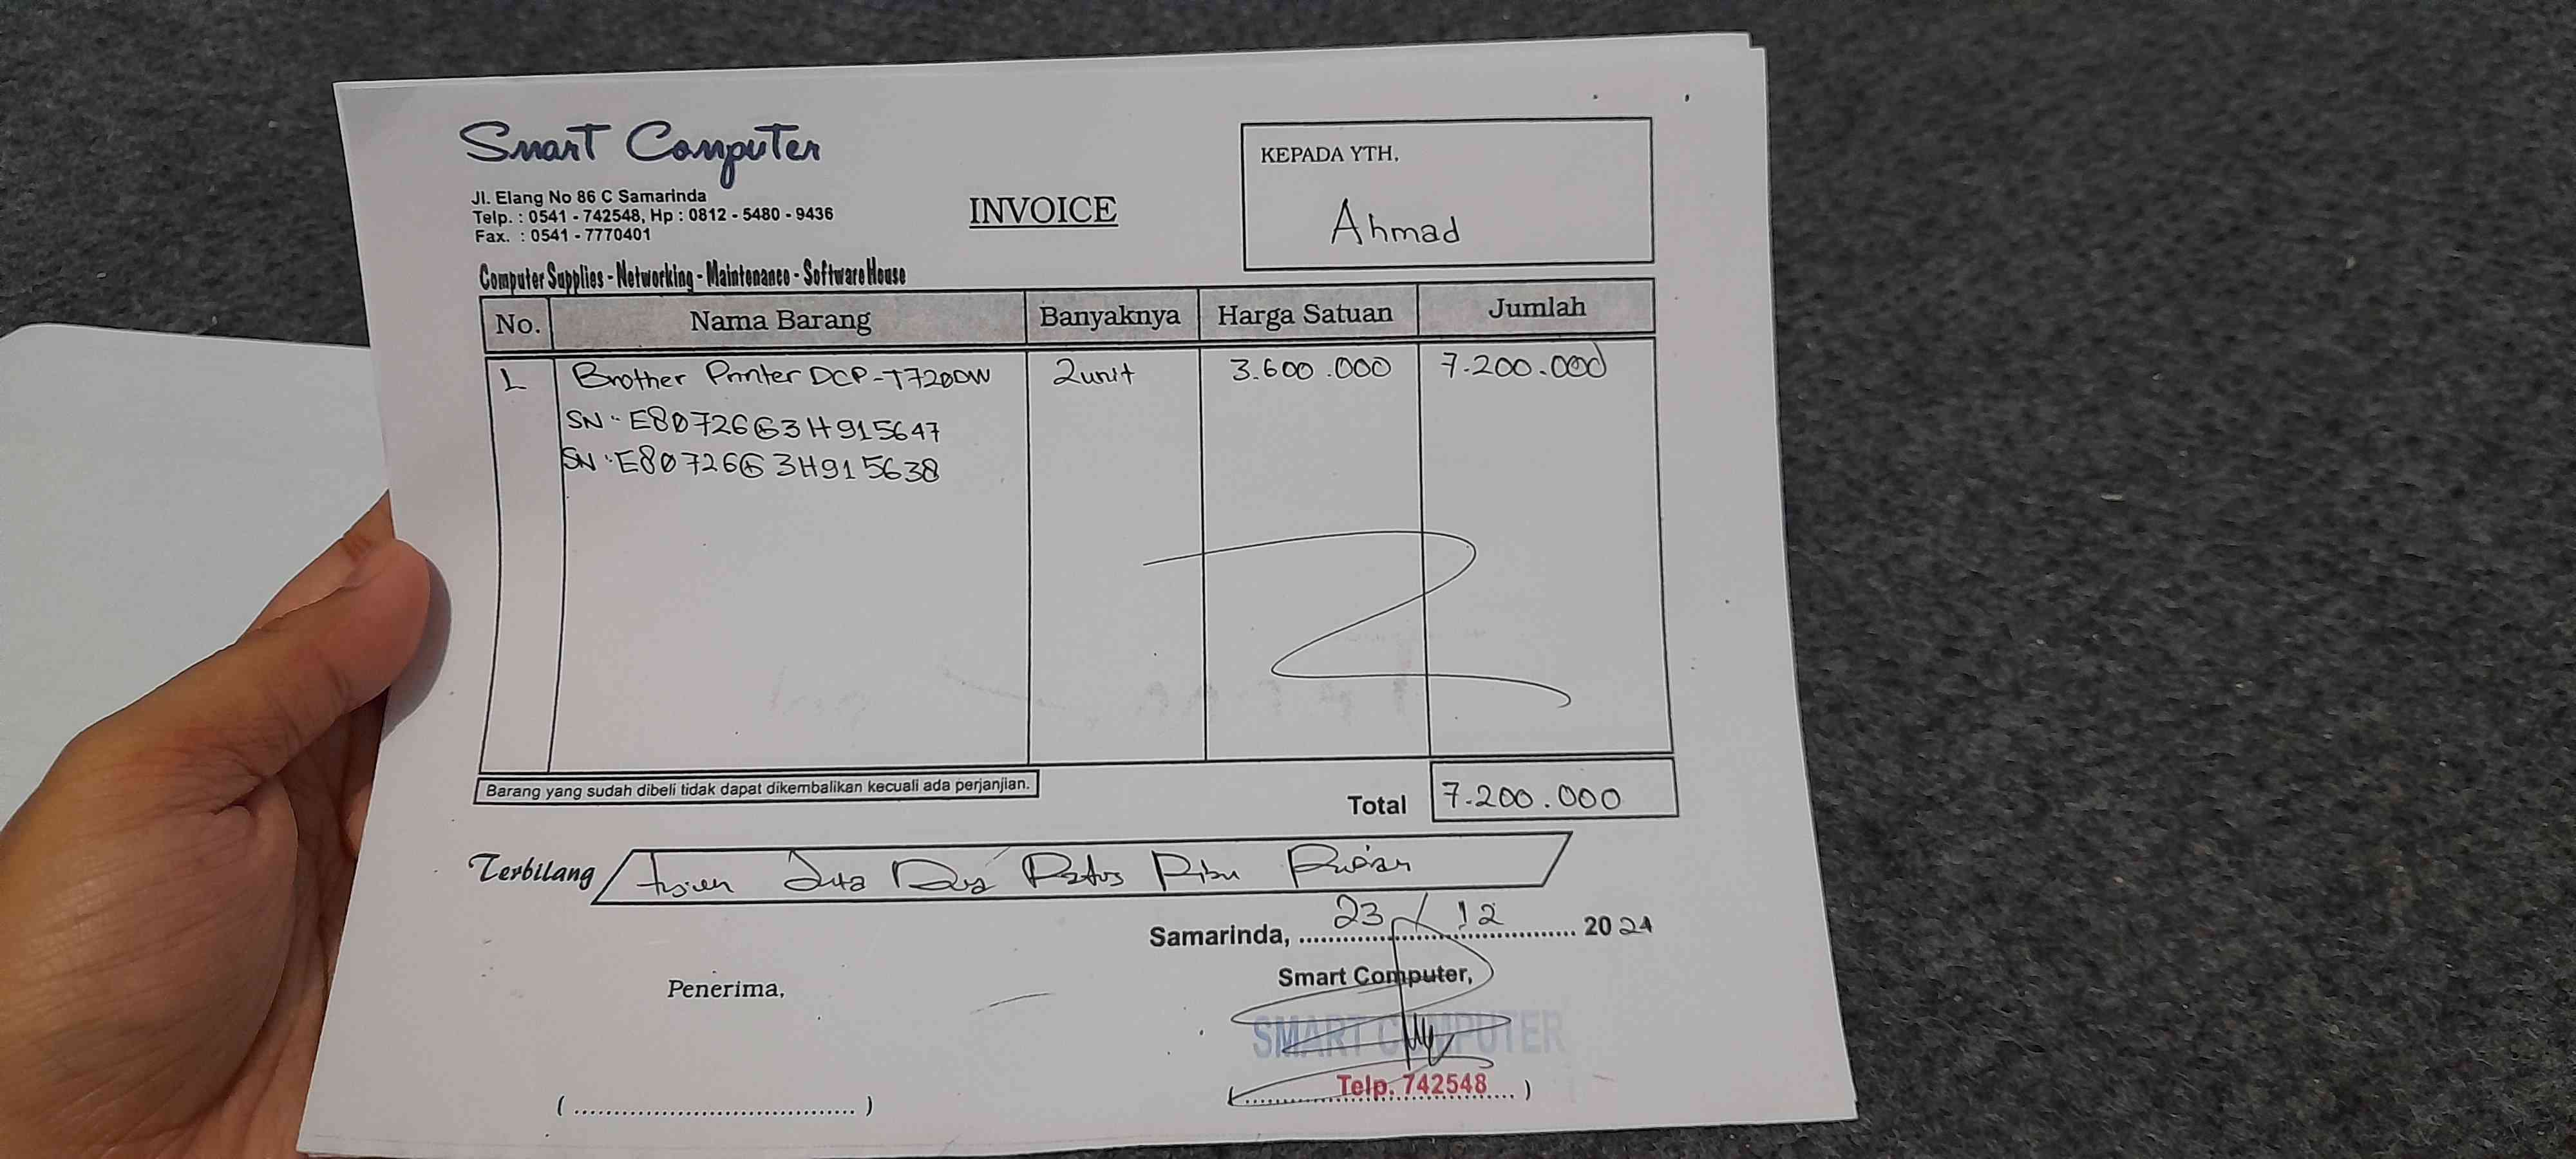 Smart Computer
Jl. Elang No 86 C Samarinda
Telp. : 0541 - 742548, Hp : 0812 - 5480 - 9436
Fax. : 0541 - 7770401
Computer Supplies - Networking - Maintenance - Software House
INVOICE
KEPADA YTH,
Ahmad
No. Nama Barang Banyaknya Harga Satuan Jumlah
1 Brother Printer DCP-T720DW 2unit 3.600.000 7.200.000
SN: E80726G3H915647
SN: E80726G3H915638
Barang yang sudah dibeli tidak dapat dikembalikan kecuali ada perjanjian.
Total 7.200.000
Terbilang Tujuh Juta Dua Ratus Ribu Rupiah
Samarinda, 23 / 12 2024
Penerima,
Smart Computer,
SMART COMPUTER
Telp. 742548